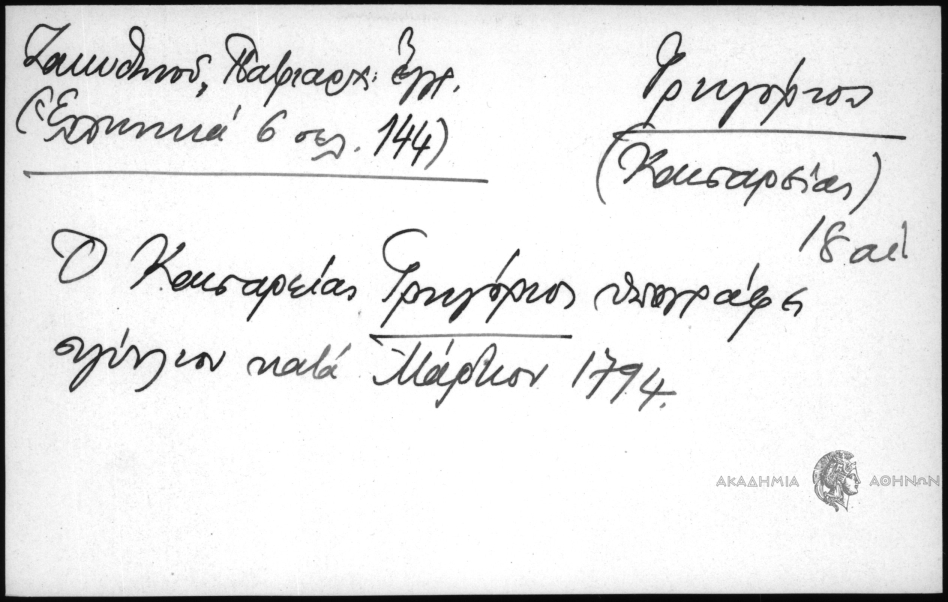 Ζακυθηνοῦ, Πατριαρχ. ἔγγρ.
(Ἑλληνικά 6 σελ. 144)
Γρηγόριος
(Καισαρείας)
18 αἰ
Ὁ Καισαρείας Γρηγόριος ὑπογράφει
σιγίλλιον κατά Μάρτιον 1794.
ΑΚΑΔΗΜΙΑ ΑΘΗΝΩΝ